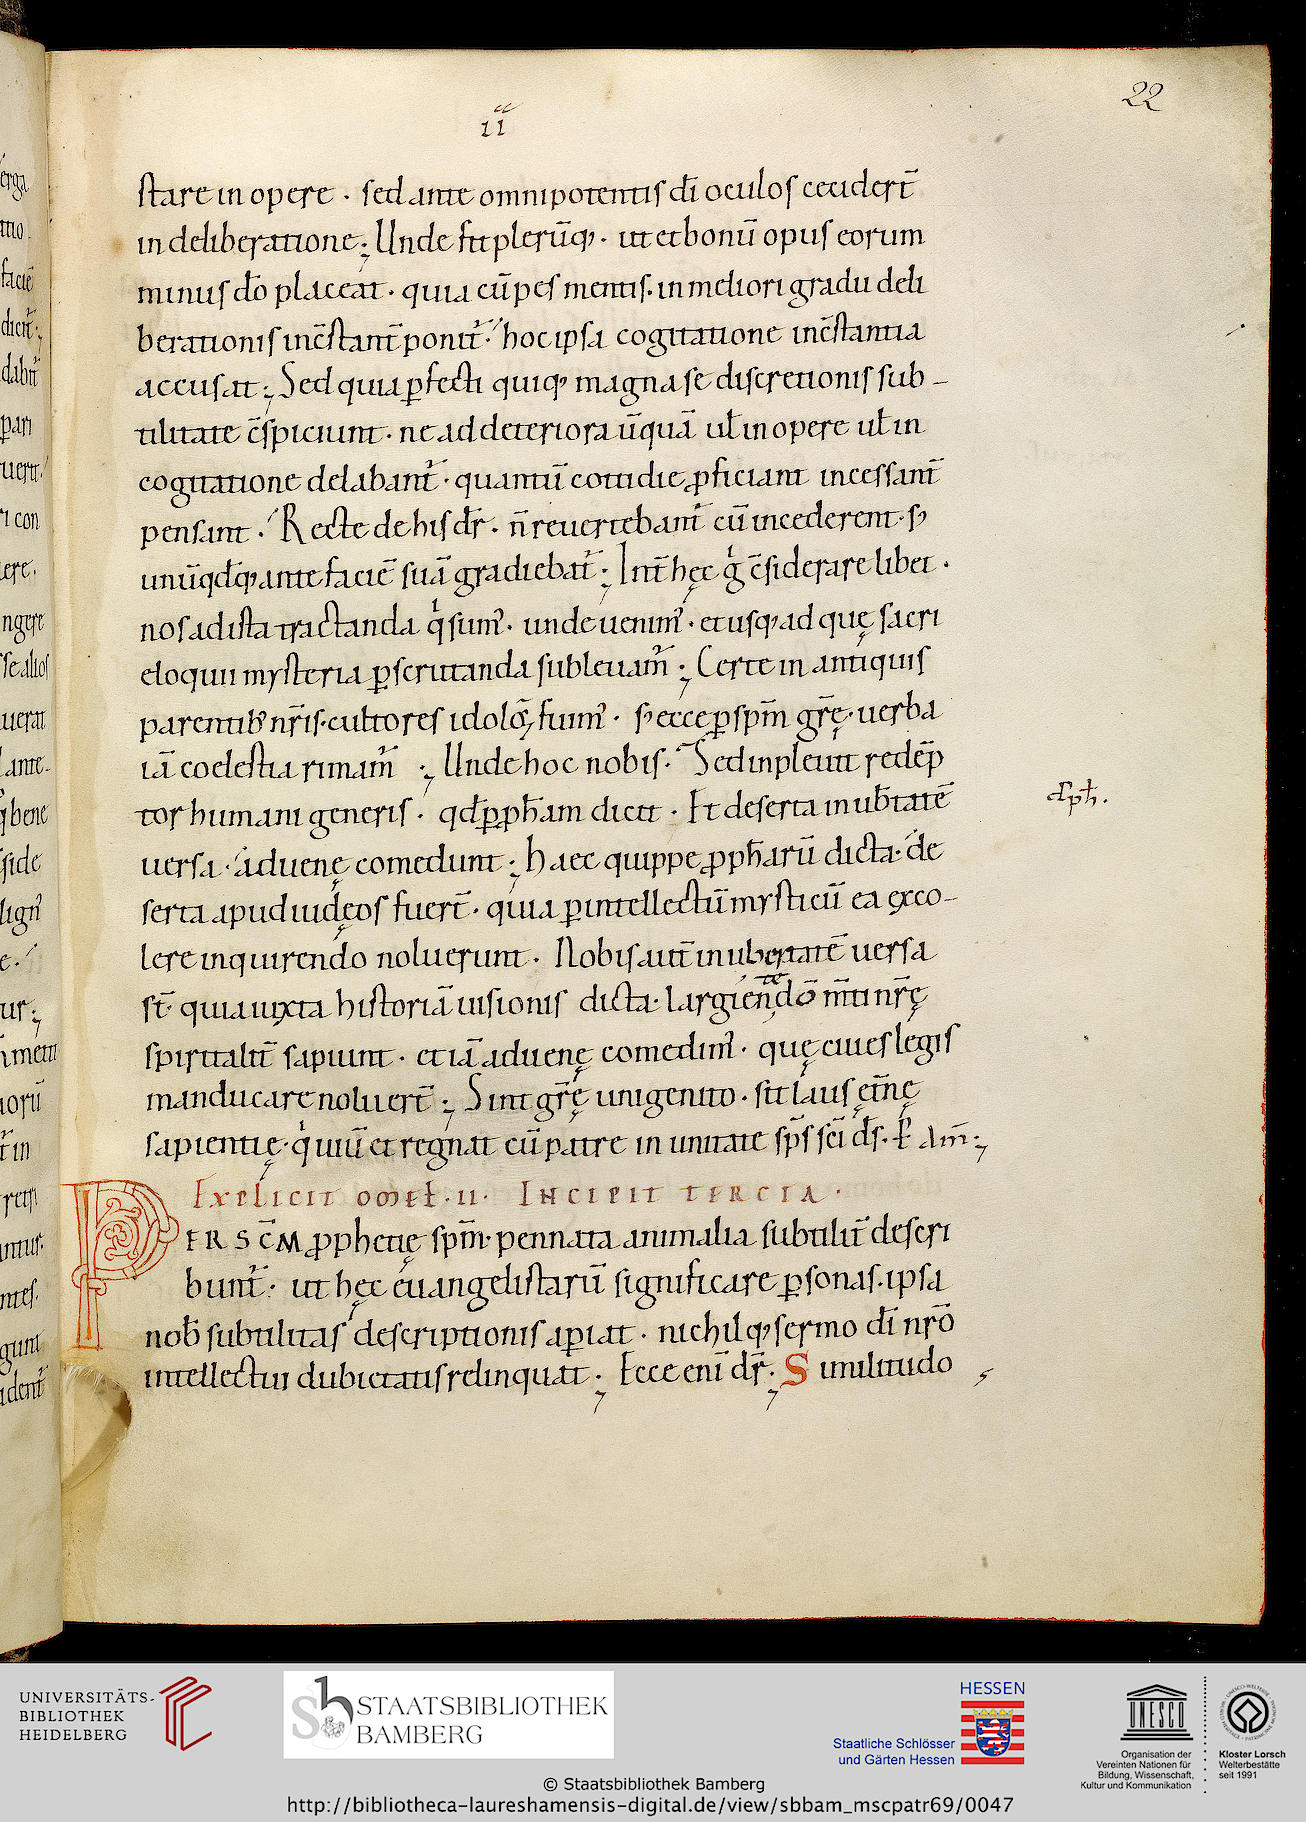 22
II
stare in opere · sed ante omnipotentis dī oculos cecidert̄
in deliberatione; Unde fit plerūq; · ut et bonū opus eorum
minus dō placeat · quia cū pes mentis · in meliori gradu deli
berationis incstant̄ ponit᷑ · hoc ipsa cogitatione inc̄stantia
accusat; Sed quia ꝑfecti quiq; magna se discretionis sub-
tilitate c̄spiciunt · ne ad deteriora ūquā ul̄ in opere ul̄ in
cogitatione delabant᷑ · quantū cottidie ꝓficiant incessant̄
pensant · Recte de his dr̄ · n̄ revertebant᷑ cū incederent · s;
unūqd̄q; ante faciē suā gradiebat᷑; Int̄ hęc gͥ c̄siderare libet ·
nos ad ista tractanda qͥ sum᷒ · unde uenim᷒ · et usq; ad quę sacri
eloquii mysteria ꝑscrutanda subleuam᷑; Certe in antiquis
parentib; nr̄is · cultores idoloꝝ fuim᷒ · s; ecce ꝑ spm̄ gr̄ę · uerba
iā coelestia rimam᷑; Unde hoc nobis · Sed inpleuit redēp
tor humani generis · qd̄ ꝑ ꝓph̄am dicit · Et deserta in ub̄tatē
uersa · aduenę comedunt; Haec quippe ꝓph̄arū dicta · de
serta apud iudęos fuert̄ · quia ꝑ intellectū mysticū ea exco-
lere inquirendo noluerunt · Nobis aut̄ in ubertatē uersa
st̄ · quia iuxta historiā uisionis dicta · largiente dō m̄ti nr̄ę
spiritalit̄ sapiunt · et iā aduenę comedim᷒ · quę ciues legis
manducare noluert̄; Sint gr̄ę unigenito · sit laus ęt̄nę
sapientię · qͥ uiū et regnat cū patre in unitate sp̄s sc̄i d̄s · ꝑ Am̄;
dꝓph̄.
Explicit omel̄ · II · Incipit tercia ·
PER SC̄M ꝓphetię spm̄ · pennata animalia subtilit̄ descri
bunt᷑ · ut hęc euangelistarū significare ꝑsonas · ipsa
nob̄ subtilitas descriptionis aperiat · nichilq; sermo dī nr̄o
intellectui dubietatis relinquat; Ecce enī dr̄; Similitudo
UNIVERSITÄTS-
BIBLIOTHEK
HEIDELBERG
STAATSBIBLIOTHEK
BAMBERG
HESSEN
Staatliche Schlösser
und Gärten Hessen
UNESCO
Organisation der
Vereinten Nationen für
Bildung, Wissenschaft,
Kultur und Kommunikation
Kloster Lorsch
Welterbestätte
seit 1991
© Staatsbibliothek Bamberg
http://bibliotheca-laureshamensis-digital.de/view/sbbam_mscpatr69/0047